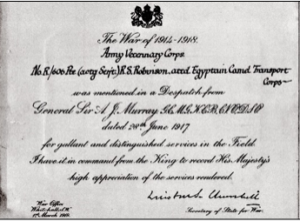 The War of 1914-1918.
Army Veterinary Corps
No. R/606 Pte. (actg Sejt.) R. S. Robinson, attd. Egyptain Camel Transport
Corps
was mentioned in a Despatch from
General Sir A. J. Murray G.C.M.G. K.C.B. C.V.O. D.S.O.
dated 28th June 1917
for gallant and distinguished services in the Field.
I have it in command from the King to record His Majesty's
high appreciation of the services rendered.
Winston S. Churchill
War Office
Whitehall, S.W.
1st March 1919.
Secretary of State for War.